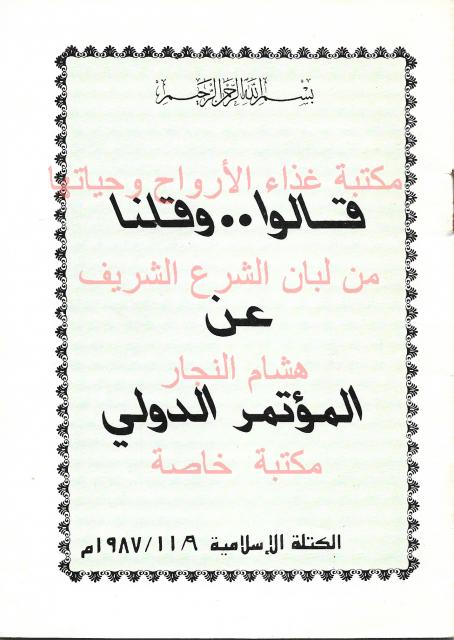 بسم الله الرحمن الرحيم
مكتبة غذاء الأرواح وحياتها
قالوا .. وقلنا
من لبان الشرع الشريف
عن
هشام النجار
المؤتمر الدولي
مكتبة خاصة
الكتلة الإسلامية ١٩٨٧/١١/٩م